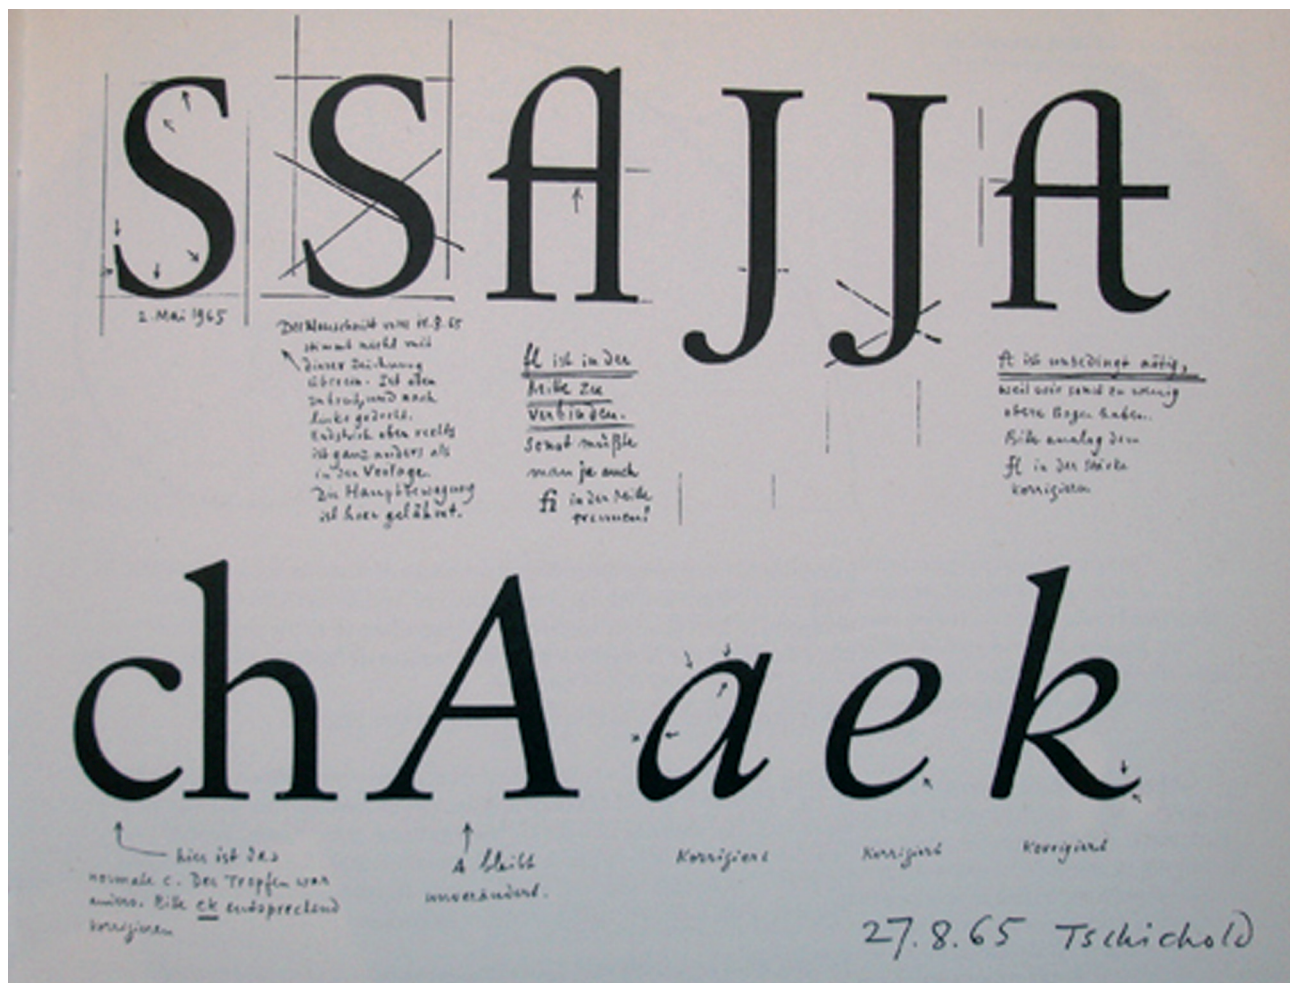 S S fl J J ft
2. Mai 1965
Der Neuschnitt vom 18.8.65
stimmt nicht mit
dieser Zeichnung
überein. Ist oben
zu breit, und nach
links gedreht.
Endstrich oben rechts
ist ganz anders als
in der Vorlage.
Die Hauptbewegung
ist hier gelähmt.
fl ist in der
Mitte zu
verbinden.
Sonst müßte
man ja auch
fi in der Mitte
trennen!
ft ist unbedingt nötig,
weil wir sonst zu wenig
obere Bogen haben.
Bitte analog dem
fl in der Stärke
korrigieren
ch A a e k
hier ist das
normale c. Der Tropfen war
anders. Bitte ck entsprechend
korrigieren
A bleibt
unverändert.
Korrigiert
Korrigiert
Korrigiert
27.8.65 Tschichold